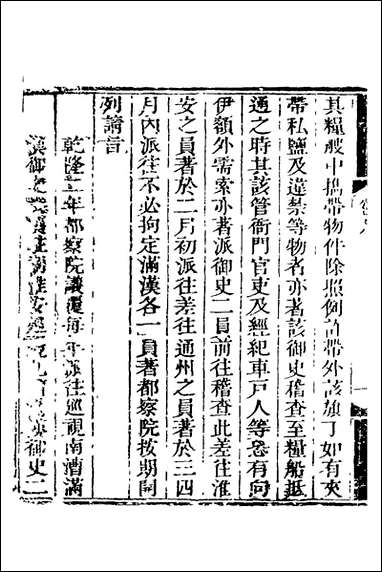 其糧艘中攜帶物件除照例准帶外該旗丁如有夾
帶私鹽及違禁等物者亦著該御史稽查至糧船抵
通之時其該管衙門官吏及經紀車戶人等恐有向
伊額外需索亦著派御史二員前往稽查此差往淮
安之員著於二月初派往差往通州之員著於三四
月內派往不必拘定滿漢各一員著都察院按期開
列請旨
乾隆二年都察院議覆每年派往巡視南漕滿
漢御史
御史二